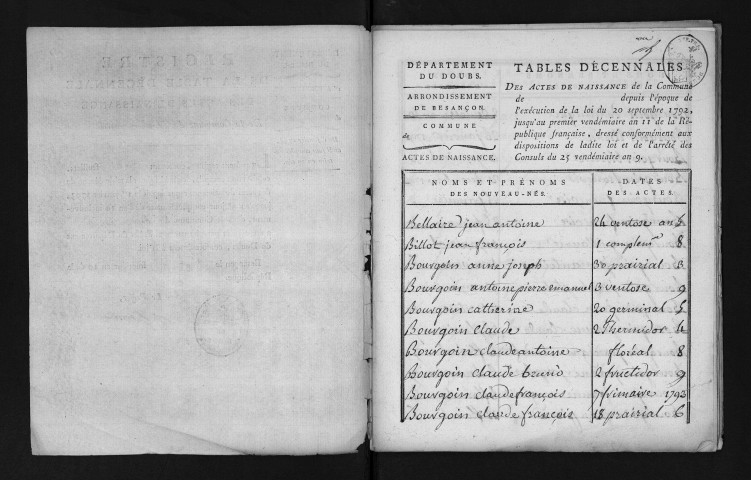 DÉPARTEMENT
DU DOUBS.
ARRONDISSEMENT
DE BESANÇON.
COMMUNE
de
ACTES DE NAISSANCE.
TABLES DÉCENNALES
DES ACTES DE NAISSANCE de la Commune
de depuis l'époque de
l'exécution de la loi du 20 septembre 1792,
jusqu'au premier vendémiaire an 11 de la Ré-
publique française, dressé conformément aux
dispositions de ladite loi et de l'arrêté des
Consuls du 25 vendémiaire an 9.
NOMS ET PRÉNOMS
DES NOUVEAU-NÉS.
DATES
DES ACTES.
Bellaire jean antoine 24 ventose an 5
Billot jean françois 1 complem 8
Bourgoin anne joseph 30 prairial 3
Bourgoin antoine pierre emanuel 3 ventose 9
Bourgoin catherine 20 germinal 5
Bourgoin Claude 2 thermidor 4
Bourgoin claude antoine floréal 8
Bourgoin claude bruno 2 fructidor 9
Bourgoin claude françois 7 frimaire 1793
Bourgoin claude françois 18 prairial 6